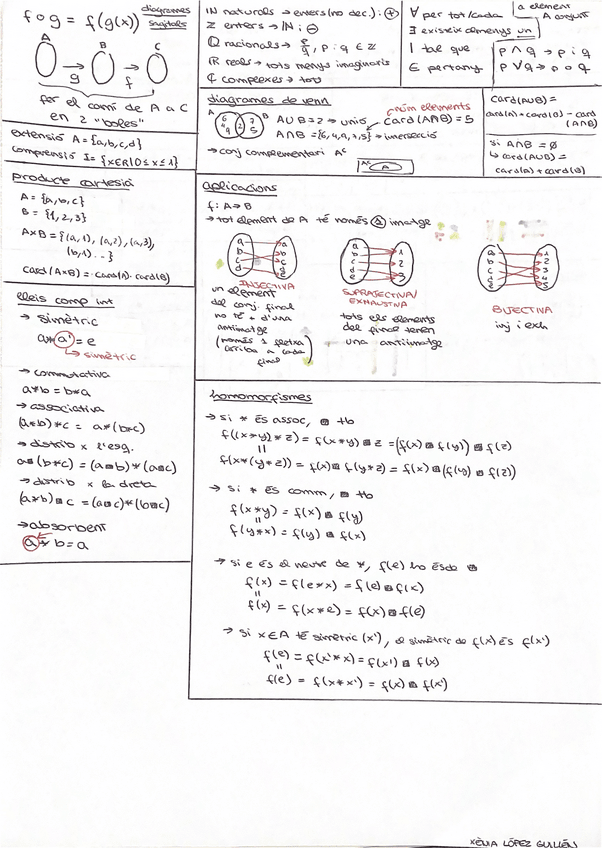 f o g = f(g(x))
diagrames
sagitals
A
B
C
g
f
fer el camí de A a C
en 2 "boles"
extensió A = {a,b,c,d}
comprensió I = {x∈R|0≤x≤1}
producte cartesià
A = {a,b,c}
B = {1,2,3}
A×B = {(a,1), (a,2), (a,3),
(b,1)...}
card(A×B) = card(A)·card(B)
lleis comp int
→ simètric
a * a' = e
→ simètric
→ commutativa
a * b = b * a
→ associativa
(a*b)*c = a*(b*c)
→ distrib x l'esq.
a⊡(b*c) = (a⊡b)*(a⊡c)
→ distrib x la dreta
(a*b)⊡c = (a⊡c)*(b⊡c)
→ absorbent
a * b = a
IN naturals → enters (no dec.) i ⊕
Z enters → IN i ⊖
Q racionals → p/q, p i q ∈ Z
R reals → tots menys imaginaris
C complexes → tots
∀ per tot/cada
∃ existeix almenys un
| tal que
∈ pertany
a element
A conjunt
p ∧ q → p i q
p ∨ q → p o q
diagrames de venn
núm elements
A
B
A∪B = 2 → unió
card(A∩B) = 5
→ intersecció
→ conj complementari Aᶜ
Aᶜ
A
card(A∪B) =
card(A) + card(B) - card
(A∩B)
si A∩B = ∅
card(A∪B) =
card(A) + card(B)
aplicacions
f: A → B
→ tot element de A té només 1 imatge
a
b
c
d
a
b
c
d
e
INJECTIVA
un element
del conj. final
no té + d'una
antiimatge
(només 1 fletxa
arriba a cada
final)
a
b
c
d
e
1
2
3
SUPRAJECTIVA/
EXHAUSTIVA
tots els elements
del final tenen
una antiimatge
a
b
c
d
e
1
2
3
4
5
BIJECTIVA
inj i exh
homomorfismes
→ si * és assoc, ⊡ tb
f((x*y)*z) = f(x*y)⊡z = (f(x)⊡f(y))⊡f(z)
=
f(x*(y*z)) = f(x)⊡f(y*z) = f(x)⊡(f(y)⊡f(z))
→ si * és comm, ⊡ tb
f(x*y) = f(x)⊡f(y)
=
f(y*x) = f(y)⊡f(x)
→ si e és el neutre de *, f(e) ho és de ⊡
f(x) = f(e*x) = f(e)⊡f(x)
=
f(x) = f(x*e) = f(x)⊡f(e)
→ si x∈A té simètric (x'), el simètric de f(x) és f(x')
f(e) = f(x'*x) = f(x')⊡f(x)
=
f(e) = f(x*x') = f(x)⊡f(x')
XÈNIA LÓPEZ GUILLÉN